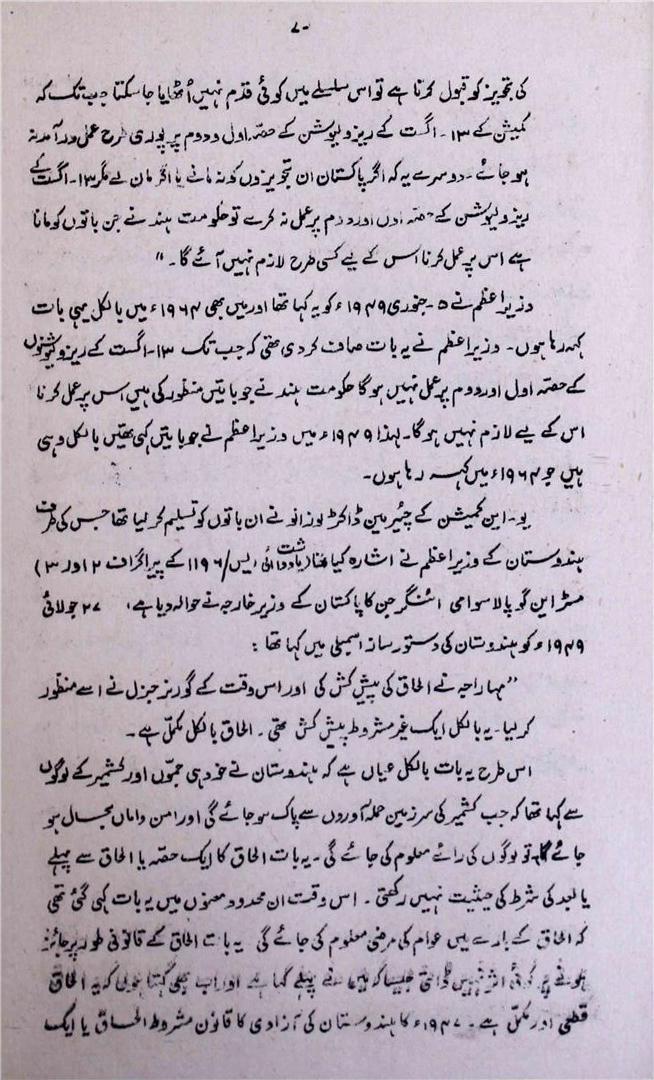 ۷۰
کی تجویز کو قبول کرنا ہے تو اس سلسلے میں کوئی قدم نہیں اُٹھایا جا سکتا جب تک کہ
کمیشن کے ۱۳۔ اگست کے ریزولیوشن کے حصّہ اول و دوم پر پوری طرح عمل درآمد نہ
ہو جائے۔ دوسرے یہ کہ اگر پاکستان ان تجویزوں کو نہ مانے یا اگر مان لے مگر ۱۳۔ اگست کے
ریزولیوشن کے حصّہ اول اور دوم پر عمل نہ کرے تو حکومت ہند نے جن باتوں کو مانا
ہے اس پر عمل کرنا اس کے لیے کسی طرح لازم نہیں آئے گا۔"
وزیراعظم نے ۵۔ جنوری ۱۹۴۹ء کو یہ کہا تھا اور میں بھی ۱۹۶۴ء میں بالکل یہی بات
کہہ رہا ہوں۔ وزیراعظم نے یہ بات صاف کر دی تھی کہ جب تک ۱۳۔ اگست کے ریزولیوشنوں
کے حصّہ اول اور دوم پر عمل نہیں ہو گا حکومت ہند نے جو باتیں منظور کی ہیں اس پر عمل کرنا
اس کے لیے لازم نہیں ہو گا۔ لہذا ۱۹۴۹ء میں وزیراعظم نے جو باتیں کہی تھیں بالکل وہی
ہیں جو ۱۹۶۴ء میں کہہ رہا ہوں۔
یو۔ این کمیشن کے چیئرمین ڈاکٹر لوزانو نے ان باتوں کو تسلیم کر لیا تھا جس کی طرف
ہندوستان کے وزیراعظم نے اشارہ کیا تھا (یادداشت ائی ایس/۱۱۹۶ کے پیراگراف ۲ اور ۳)
مسٹر این گوپالاسوامی ائنگر جن کا پاکستان کے وزیر خارجہ نے حوالہ دیا ہے، ۲۷ جولائی
۱۹۴۹ء کو ہندوستان کی دستور ساز اسمبلی میں کہا تھا :
"مہاراجہ نے الحاق کی پیش کش کی اور اس وقت کے گورنر جنرل نے اسے منظور
کر لیا۔ یہ بالکل ایک غیر مشروط پیش کش تھی۔ الحاق بالکل مکمل ہے۔
اس طرح یہ بات بالکل عیاں ہے کہ ہندوستان نے خود ہی جموں اور کشمیر کے لوگوں
سے کہا تھا کہ جب کشمیر کی سرزمین حملہ آوروں سے پاک ہو جائے گی اور امن و اماں بحال ہو
جائے گا۔ تو لوگوں کی رائے معلوم کی جائے گی۔ یہ بات الحاق کا ایک حصّہ یا الحاق سے پہلے
یا بعد کی شرط کی حیثیت نہیں رکھتی۔ اس وقت ان محدود معنوں میں یہ بات کہی گئی تھی
کہ الحاق کے بارے میں عوام کی مرضی معلوم کی جائے گی یہ بات الحاق کے قانونی طور پر جائز
ہونے پر کوئی اثر نہیں ڈالتی جیسا کہ میں نے پہلے کہا ہے اور اب بھی کہتا ہوں کہ یہ الحاق
قطعی اور مکمل ہے۔ ۱۹۴۷ء کا ہندوستان کی آزادی کا قانون مشروط الحاق یا ایک